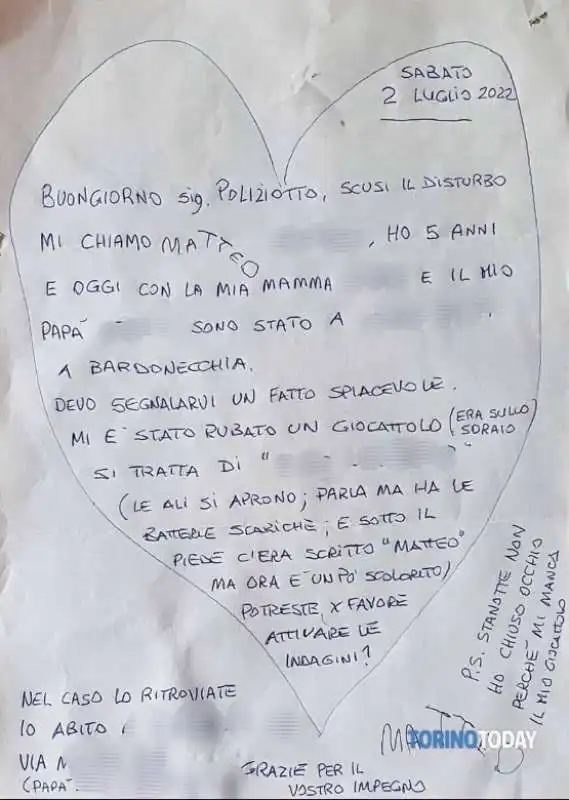 SABATO
2 LUGLIO 2022
BUONGIORNO sig. POLIZIOTTO, SCUSI IL DISTURBO
MI CHIAMO MATTEO , HO 5 ANNI
E OGGI CON LA MIA MAMMA E IL MIO
PAPÀ SONO STATO A ,
A BARDONECCHIA.
DEVO SEGNALARVI UN FATTO SPIACEVOLE.
MI È STATO RUBATO UN GIOCATTOLO (ERA SULLO
SDRAIO)
SI TRATTA DI " "
(LE ALI SI APRONO; PARLA MA HA LE
BATTERIE SCARICHE; E SOTTO IL
PIEDE C'ERA SCRITTO "MATTEO"
MA ORA È UN PÒ SCOLORITO)
POTRESTE, X FAVORE
ATTIVARE LE
INDAGINI?
P.S. STANOTTE NON
HO CHIUSO OCCHIO
PERCHÉ MI MANCA
IL MIO GIOCATTOLO
NEL CASO LO RITROVIATE
IO ABITO
VIA
(PAPÀ
GRAZIE PER IL
VOSTRO IMPEGNO
TORINOTODAY